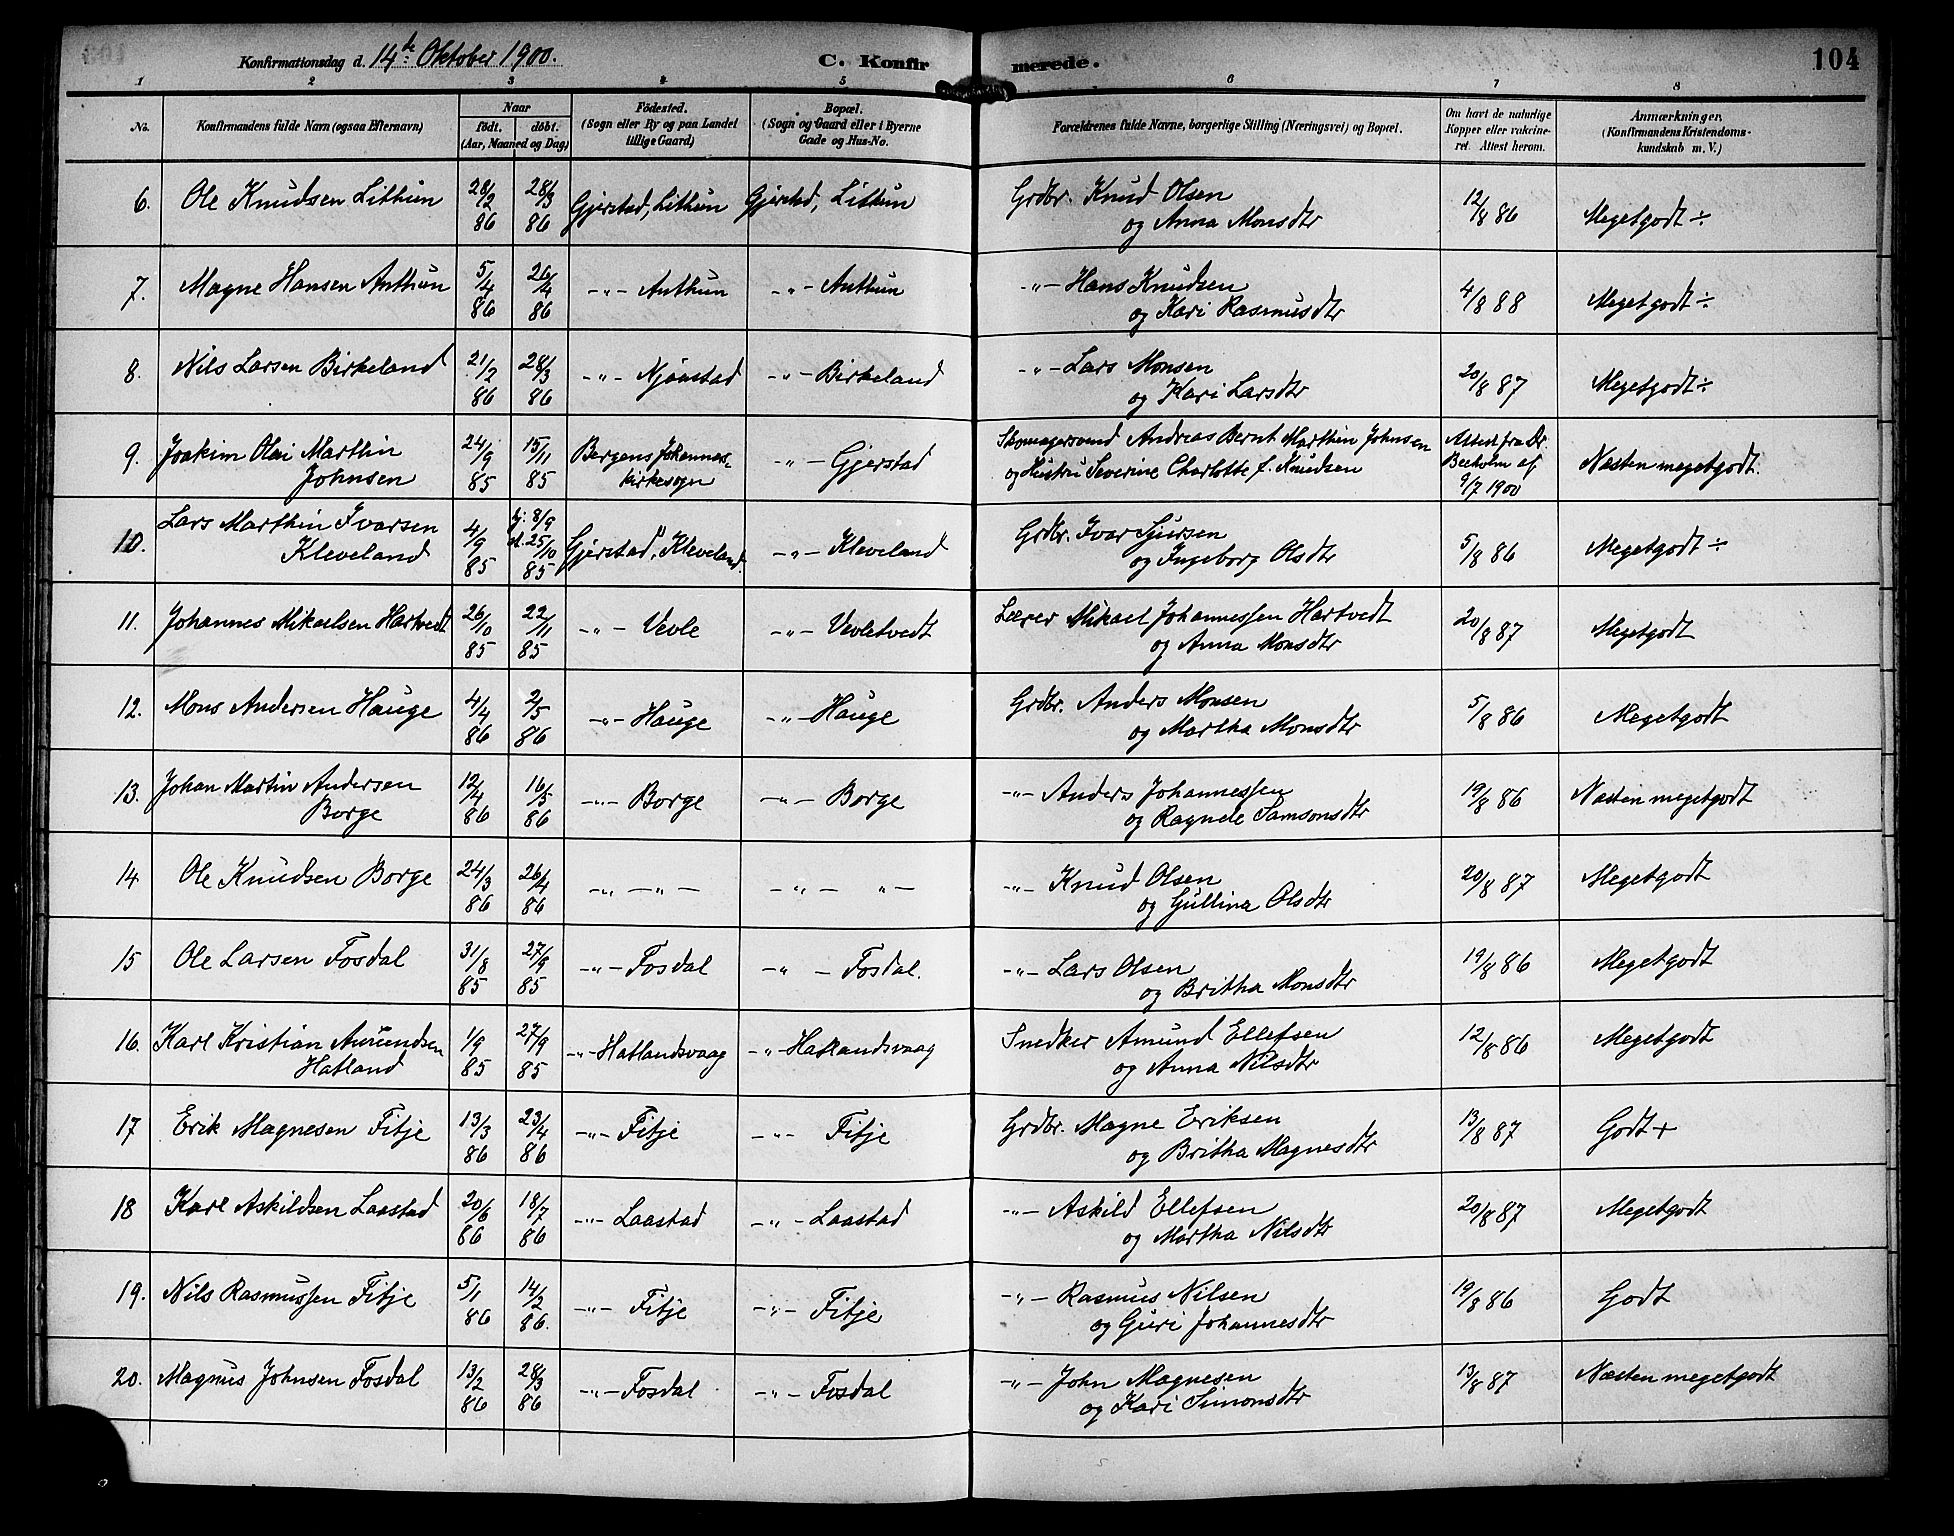 Konfirmationsdag d. 14de Oktober 1900. C. Konfirmerede. 104
1 2 3 4 5 6 7 8
No. Konfirmandens fulde Navn (ogsaa Efternavn) Naar født. døbt. (Aar, Maaned og Dag) Fødested. (Sogn eller By og paa Landet tillige Gaard) Bopæl. (Sogn og Gaard eller i Byerne Gade og Hus-No. Forældrenes fulde Navne, borgerlige Stilling (Næringsvei) og Bopæl. Om havt de naturlige Kopper eller vakcineret. Attest herom. Anmærkninger. (Konfirmandens Kristendomskundskab m. V.)
6. Ole Knudsen Lithun 28/2 86 28/3 86 Gjerstad, Lithun Gjerstad, Lithun Grdbr. Knud Olsen 12/8 86 Megetgodt ÷
og Anna Monsdtr
7. Magne Hansen Anthun 5/4 86 26/4 86 -"- Anthun -"- Anthun -"- Hans Knudsen 4/8 88 Megetgodt ÷
og Kari Rasmusdtr
8. Nils Larsen Birkeland 21/2 86 28/3 86 -"- Njaastad -"- Birkeland -"- Lars Monsen 20/8 87 Megetgodt ÷
og Kari Larsdtr
9. Joakim Olai Marthin 24/9 85 15/11 85 Bergens Johannes- -"- Gjerstad Skomagersvend Andreas Bernt Marthin Johnsen Attest fra Dr.
Johnsen kirkesogn og Hustru Severine Charlotte f. Knudsen af 9/7 1900 Næsten megetgodt.
10. Lars Marthin Ivarsen 4/9 85 hj. 8/9 st. 25/10 85 Gjerstad, Kleveland. -"- Kleveland Grdbr. Ivar Sjursen 5/8 86 Megetgodt ÷
Kleveland og Ingeborg Olsdtr
11. Johannes Mikaelsen Hartvedt 26/10 85 22/11 85 -"- Vevle -"- Vevletvedt Lærer Mikael Johannessen Hartvedt 20/8 87 Megetgodt
og Anna Monsdtr
12. Mons Andersen Hauge 4/4 86 2/5 86 -"- Hauge -"- Hauge Grdbr. Anders Monsen 5/8 86 Megetgodt
og Martha Monsdtr
13. Johan Martin Andersen 12/4 86 16/5 86 -"- Borge -"- Borge -"- Anders Johannessen 19/8 86 Næsten megetgodt
Borge og Ragnele Samsonsdtr
14 Ole Knudsen Borge 24/3 86 26/4 86 -"- -"- -"- -"- -"- Knud Olsen 20/8 87 Megetgodt
og Gullina Olsdtr
15 Ole Larsen Fosdal 31/8 85 27/9 85 -"- Fosdal -"- Fosdal. -"- Lars Olsen 19/8 86 Megetgodt
og Britha Monsdtr
16. Karl Kristian Amundsen 1/9 85 27/9 85 -"- Hatlandsvaag -"- Hatlandsvaag Snedker Amund Ellefsen 12/8 86 Megetgodt
Hatland og Anna Nilsdtr
17 Erik Magnesen Fitje 13/3 86 23/4 86 -"- Fitje -"- Fitje Grdbr. Magne Eriksen 13/8 87 Godt +
og Britha Magnesdtr
18 Karl Askildsen Laastad 20/6 86 18/7 86 -"- Laastad -"- Laastad -"- Askild Ellefsen 20/8 87 Megetgodt
og Martha Nilsdtr
19. Nils Rasmussen Fitje 5/1 86 14/2 86. -"- Fitje -"- Fitje -"- Rasmus Nilsen 19/8 86 Godt
og Guri Johannesdtr
20. Magnus Johnsen Fosdal 13/2 86 28/3 86 -"- Fosdal -"- Fosdal -"- John Magnesen 13/8 87 Næsten megetgodt
og Kari Simonsdtr